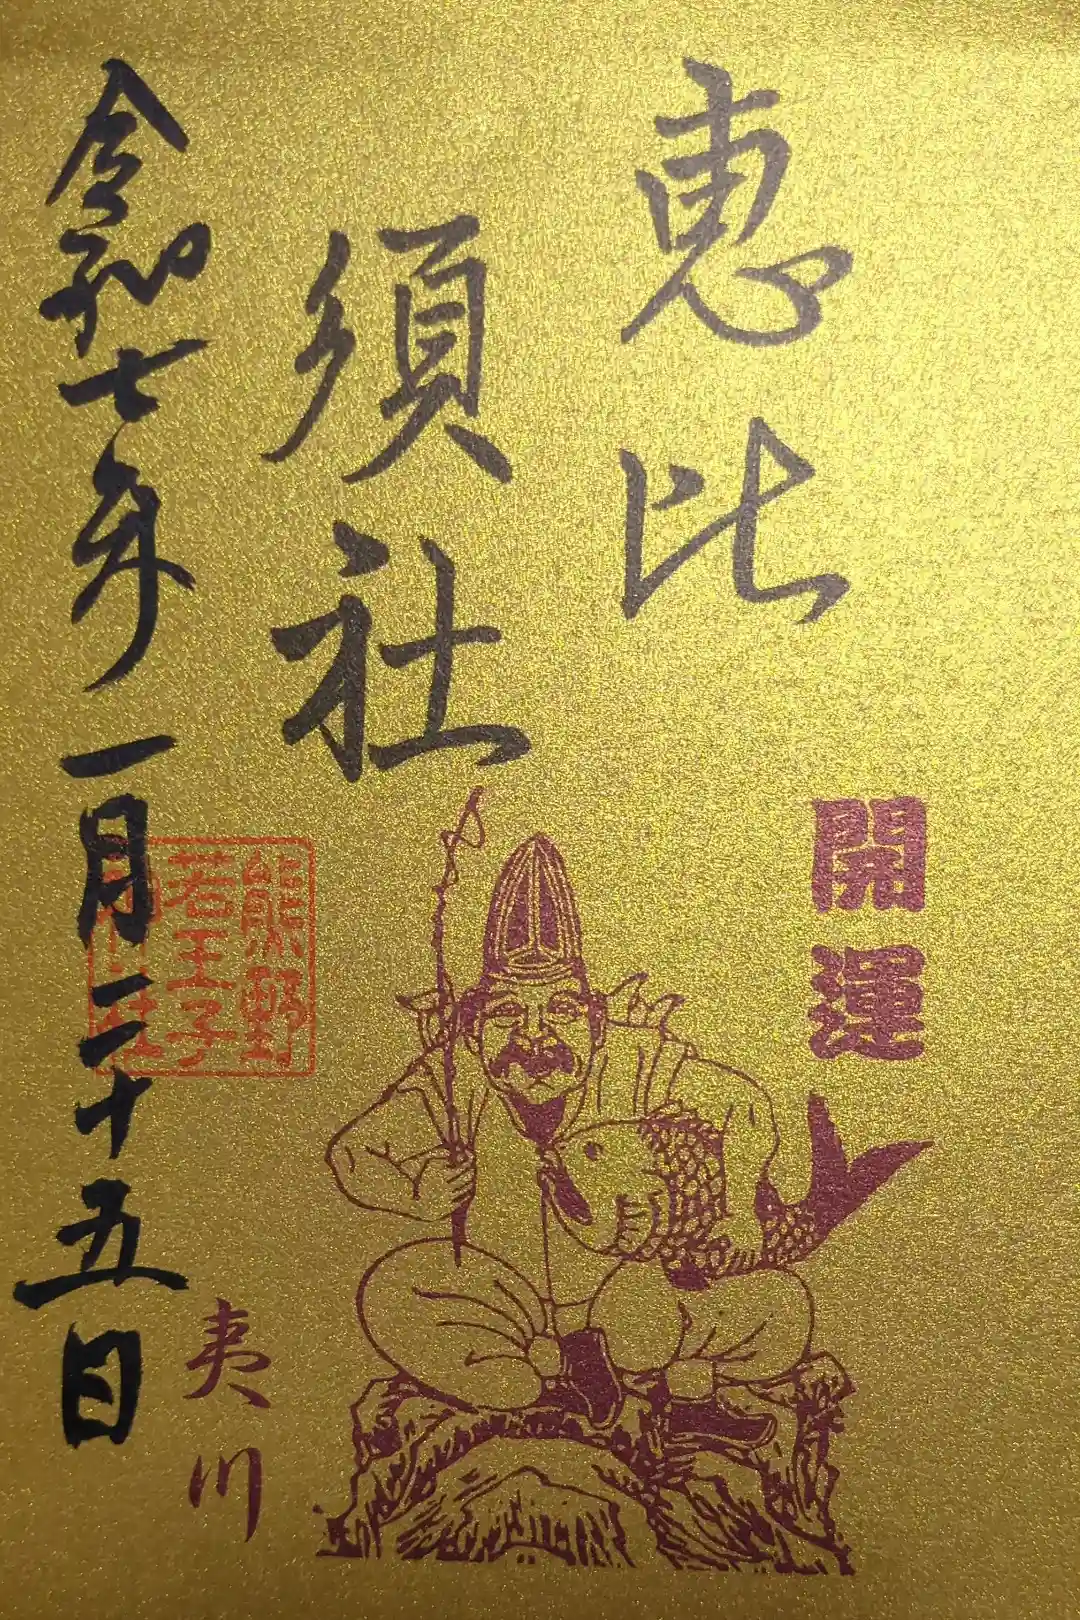 恵比
須社
開運
熊野
若王子
神社
夷川
令和七年一月二十五日